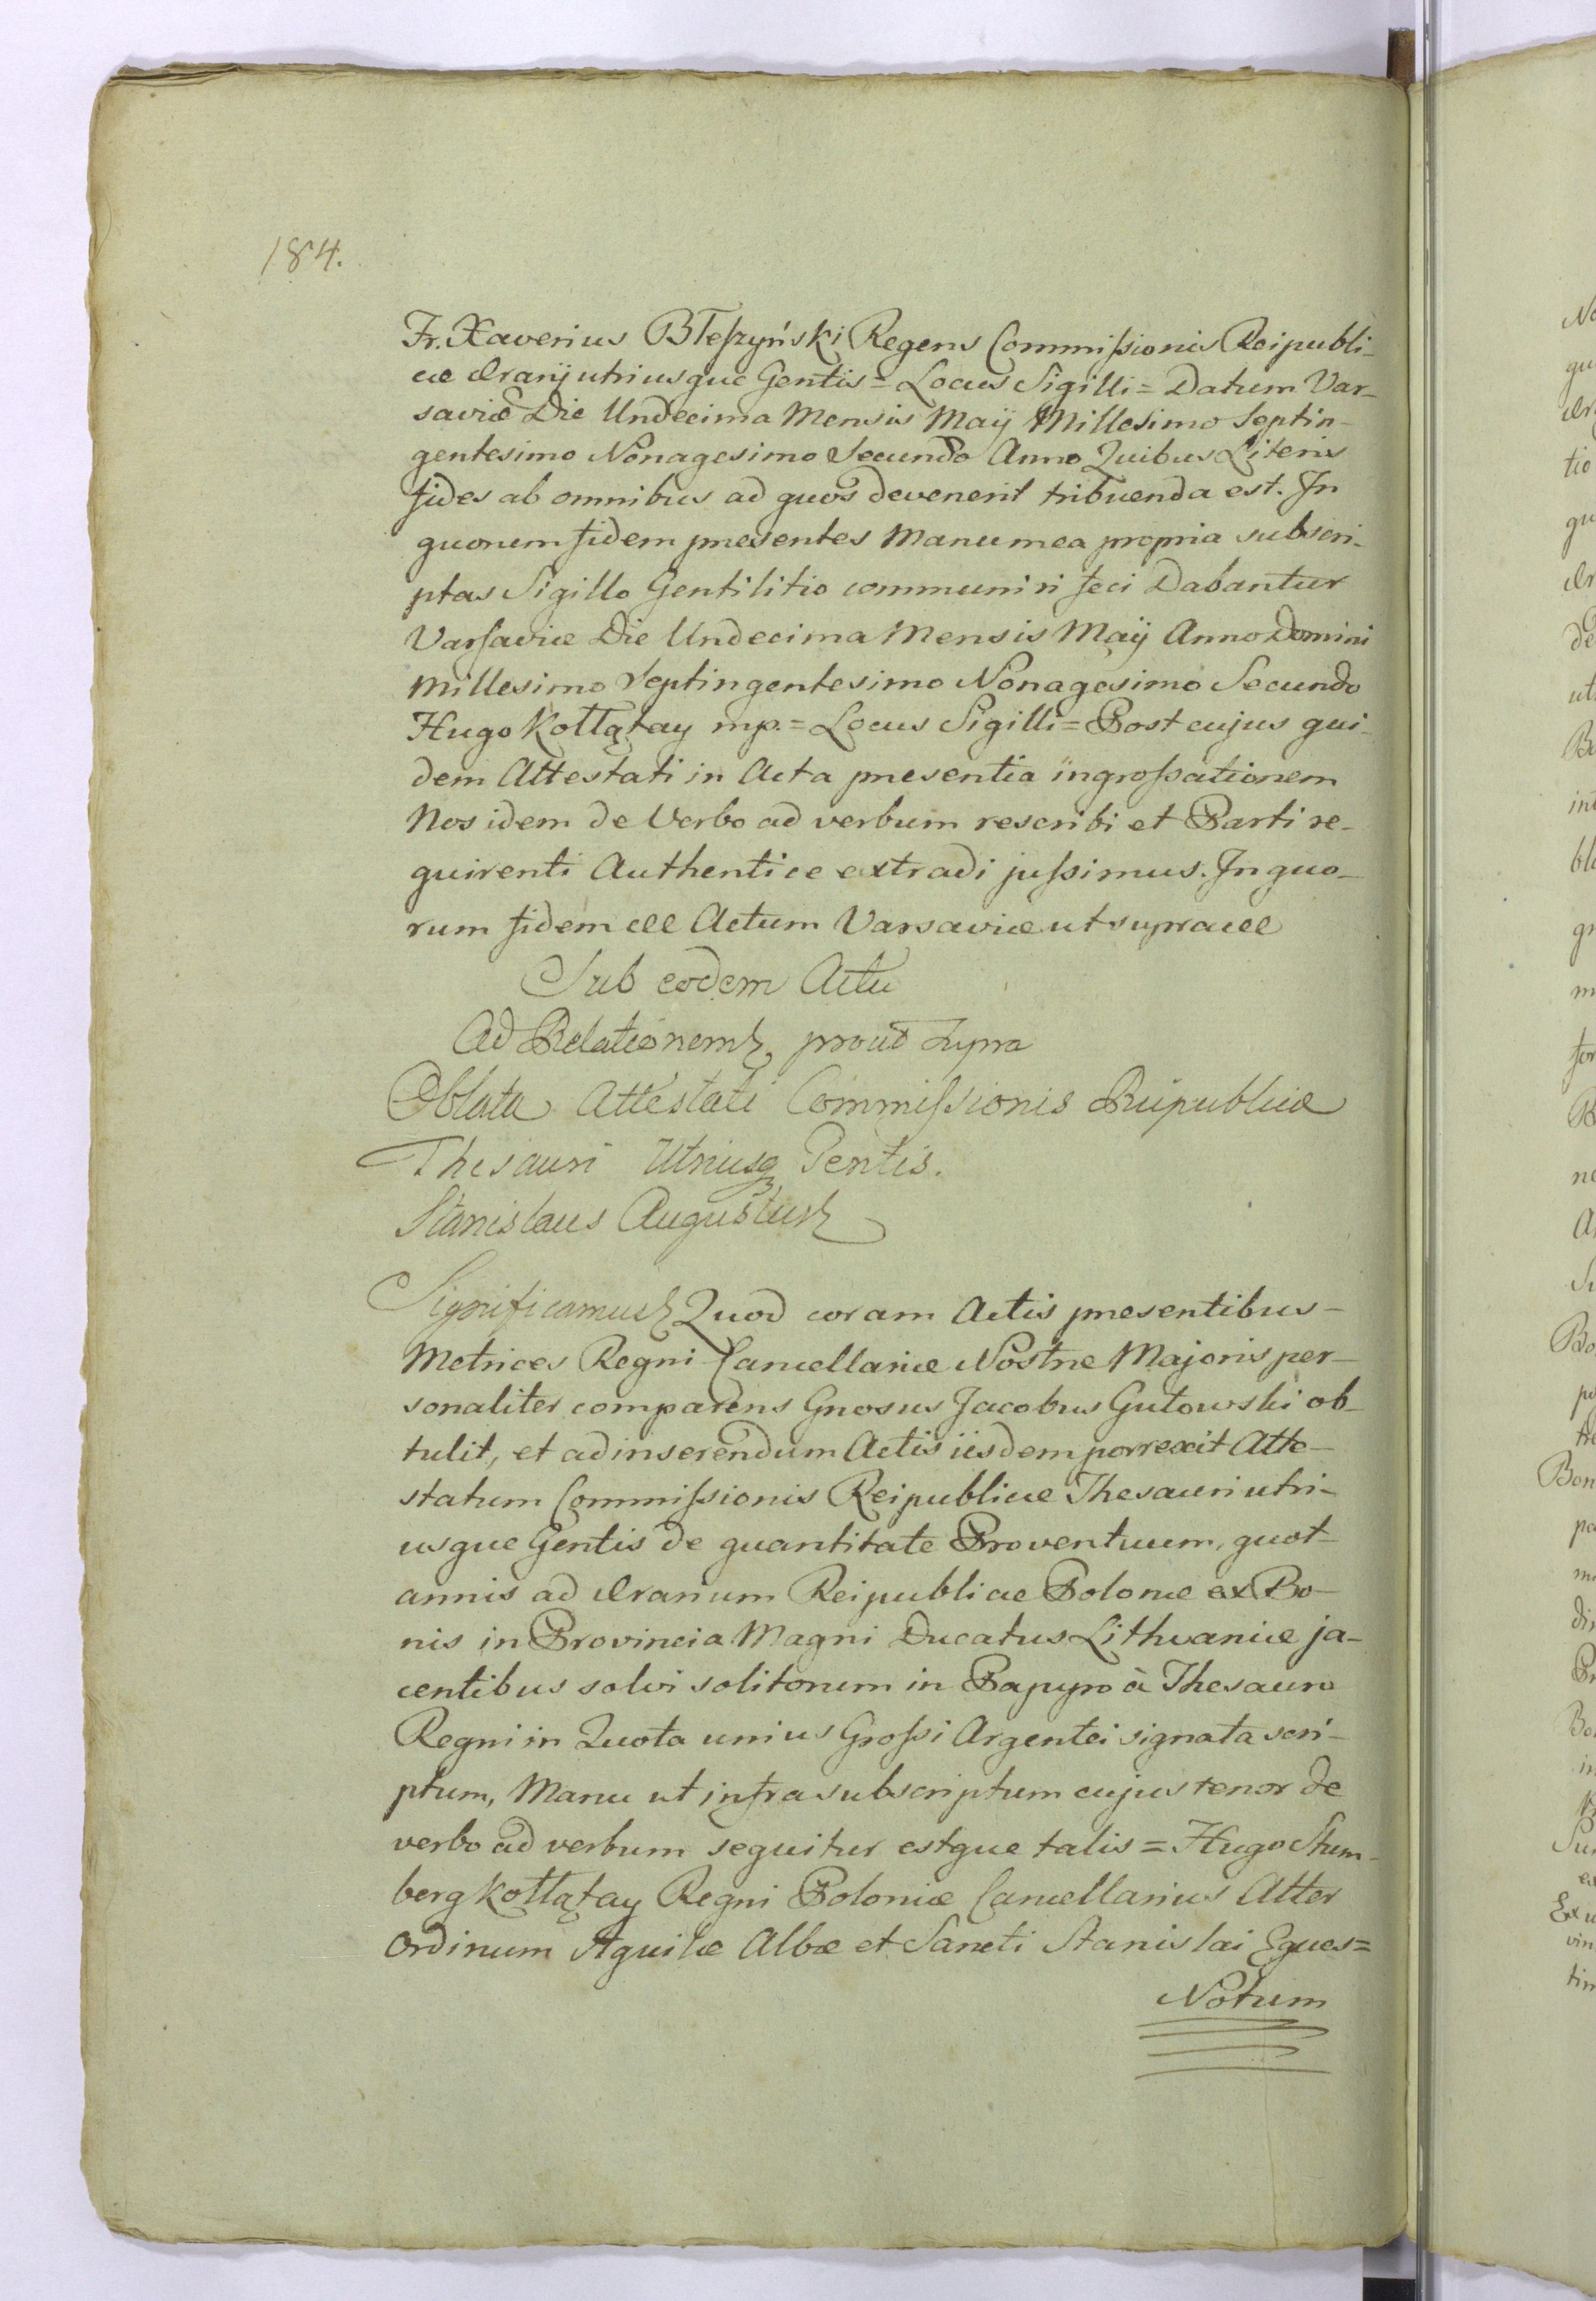 184.
Fr. Xaverius Błeszyński Regens Commissionis Reipubli-
cæ Ærarij utriusque Gentis = Locus Sigilli = Datum Var-
saviæ Die Undecima Mensis Maÿ Millesimo Septin-
gentesimo Nonagesimo Secundo Anno Quibus Literis
fides ab omnibus ad quos devenerit tribuenda est. In
quorum fidem præsentes Manu mea propria subscri-
ptas Sigillo Gentilitio communiri feci Dabantur
Varsaviæ Die Undecima Mensis Maÿ Anno Domini
Millesimo Septingentesimo Nonagesimo Secundo
Hugo Kołłątay mp. = Locus Sigilli = Post cujus qui-
dem Attestati in Acta præsentia ingrossationem
Nos idem de Verbo ad verbum rescribi et Parti re-
quirenti Authentice extradi jussimus. In quo-
rum fidem etc Actum Varsaviæ ut supra etc
Sub eodem Actu
Ad Relationem prout supra
Oblata Attestati Commissionis Reipublicæ
Thesauri Utriusq Gentis.
Stanislaus Augustus
Significamus Quod coram Actis præsentibus
Metrices Regni Cancellariæ Nostræ Majoris per-
sonaliter comparens Gnosus Jacobus Gutowski ob-
tulit, et ad inserendum Actis iisdem porrexit Atte-
statum Commissionis Reipublicæ Thesauri utri-
usque Gentis de quantitate Proventuum, quot-
annis ad Ærarium Reipublicæ Polonæ ex Bo-
nis in Provincia Magni Ducatus Lithvaniæ ja-
centibus solvi solitorum in Papyro à Thesauro
Regni in Quota unius Grossi Argentei signata scri-
ptum, Manu ut infra subscriptum cujus tenor de
verbo ad verbum sequitur estque talis = Hugo Stum-
berg Kołłątay Regni Poloniæ Cancellarius Alter
Ordinum Aquilæ Albæ et Sancti Stanislai Eques =
Notum